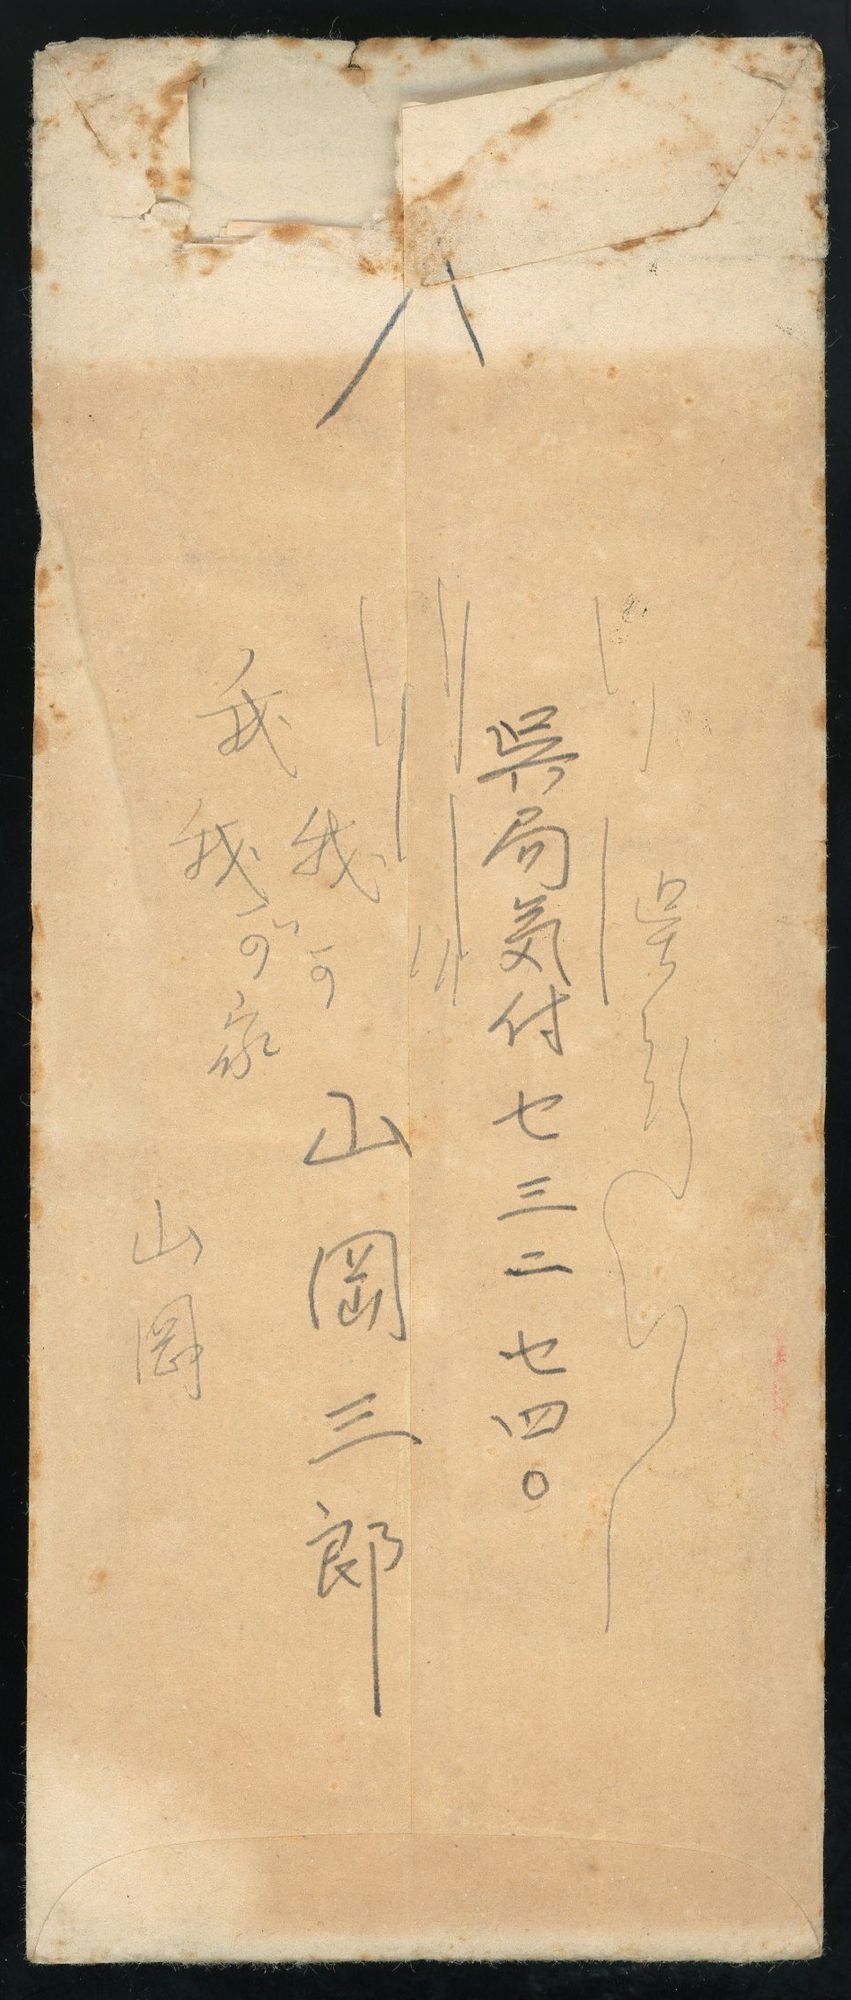 呉
呉局気付セ三二七四〇
山岡三郎
我可
我
我が家
山岡